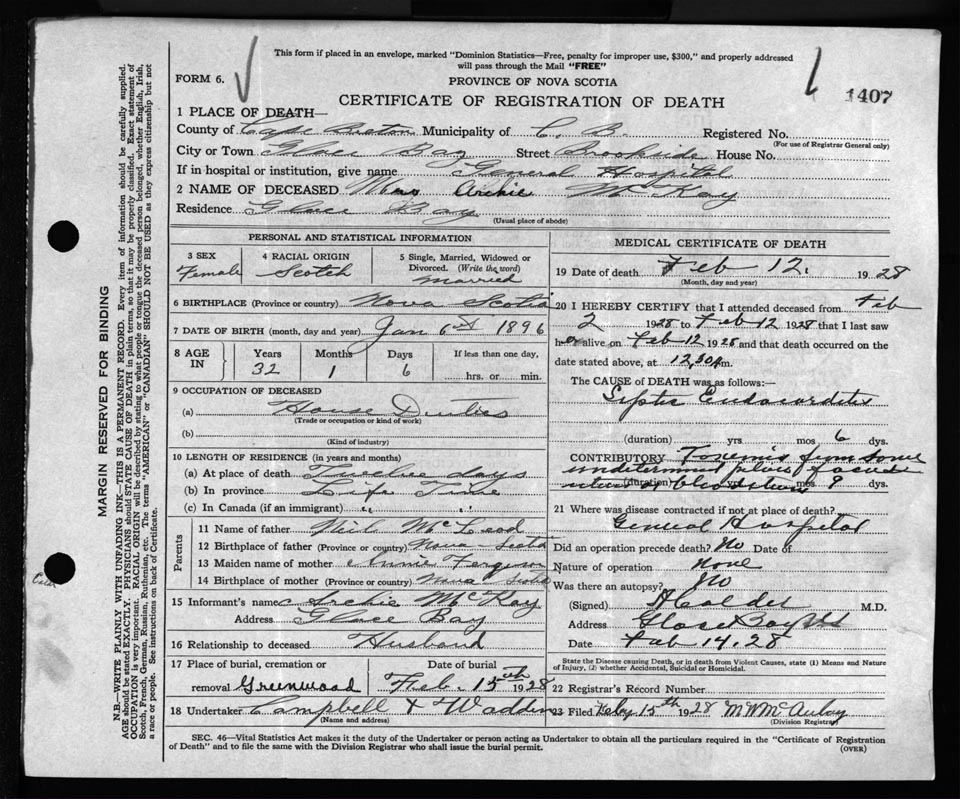 This form if placed in an envelope, marked "Dominion Statistics—Free, penalty for improper use, $300," and properly addressed
will pass through the Mail "FREE"
FORM 6.
PROVINCE OF NOVA SCOTIA
CERTIFICATE OF REGISTRATION OF DEATH
1407
1 PLACE OF DEATH—
County of Cape Breton Municipality of C. B. Registered No.
(For use of Registrar General only)
City or Town Glace Bay Street Brookside House No.
If in hospital or institution, give name General Hospital
2 NAME OF DECEASED Mrs Archie McKay
Residence Glace Bay
(Usual place of abode)
PERSONAL AND STATISTICAL INFORMATION
3 SEX
Female
4 RACIAL ORIGIN
Scotch
5 Single, Married, Widowed or
Divorced. (Write the word)
married
6 BIRTHPLACE (Province or country) Nova Scotia
7 DATE OF BIRTH (month, day and year) Jan 6th 1896
8 AGE IN
Years Months Days If less than one day,
32 1 6 hrs. or min.
9 OCCUPATION OF DECEASED
(a) House Duties
(Trade or occupation or kind of work)
(b)
(Kind of industry)
10 LENGTH OF RESIDENCE (in years and months)
(a) At place of death Twelve days
(b) In province Life Time
(c) In Canada (if an immigrant) " "
Parents
11 Name of father Neil McLeod
12 Birthplace of father (Province or country) Nova Scotia
13 Maiden name of mother Annie Ferguson
14 Birthplace of mother (Province or country) Nova Scotia
15 Informant's name Archie McKay
Address Glace Bay
16 Relationship to deceased Husband
17 Place of burial, cremation or
removal Greenwood
Date of burial
Feb. 15th 1928
18 Undertaker Campbell & Wadden
(Name and address)
MEDICAL CERTIFICATE OF DEATH
19 Date of death Feb 12. 1928
(Month, day and year)
20 I HEREBY CERTIFY that I attended deceased from Feb
2 1928 to Feb 12 1928 that I last saw
her alive on Feb 12 1928 and that death occurred on the
date stated above, at 12.30
The CAUSE of DEATH was as follows:—
Septic Endocarditis
(duration) yrs mos 6 dys.
CONTRIBUTORY Toxemia from some
undetermined
(duration) mos 8 dys.
21 Where was disease contracted if not at place of death?
General Hospital
Did an operation precede death? No Date of
Nature of operation None
Was there an autopsy? No
(Signed) M.D.
Address Glace Bay NS
Date Feb 14. 28
State the Disease causing Death, or in death from Violent Causes, state (1) Means and Nature
of Injury, (2) whether Accidental, Suicidal or Homicidal.
22 Registrar's Record Number
23 Filed Feby 15th 1928 M W McAulay
(Division Registrar)
SEC. 46—Vital Statistics Act makes it the duty of the Undertaker or person acting as Undertaker to obtain all the particulars required in the "Certificate of Registration
of Death" and to file the same with the Division Registrar who shall issue the burial permit.
(OVER)
MARGIN RESERVED FOR BINDING
N.B.—WRITE PLAINLY WITH UNFADING INK—THIS IS A PERMANENT RECORD. Every item of information should be carefully supplied.
AGE should be stated EXACTLY. PHYSICIANS should STATE CAUSE OF DEATH in plain terms, so that it may be properly classified. Exact statement of
OCCUPATION is very important. RACIAL ORIGIN will be described by stating to what people or tongue the deceased person belonged, whether English, Irish,
Scotch, French, German, Russian, Ruthenian, etc. The terms "AMERICAN" or "CANADIAN" SHOULD NOT BE USED as they express citizenship but not
a race or people. See instructions on back of Certificate.